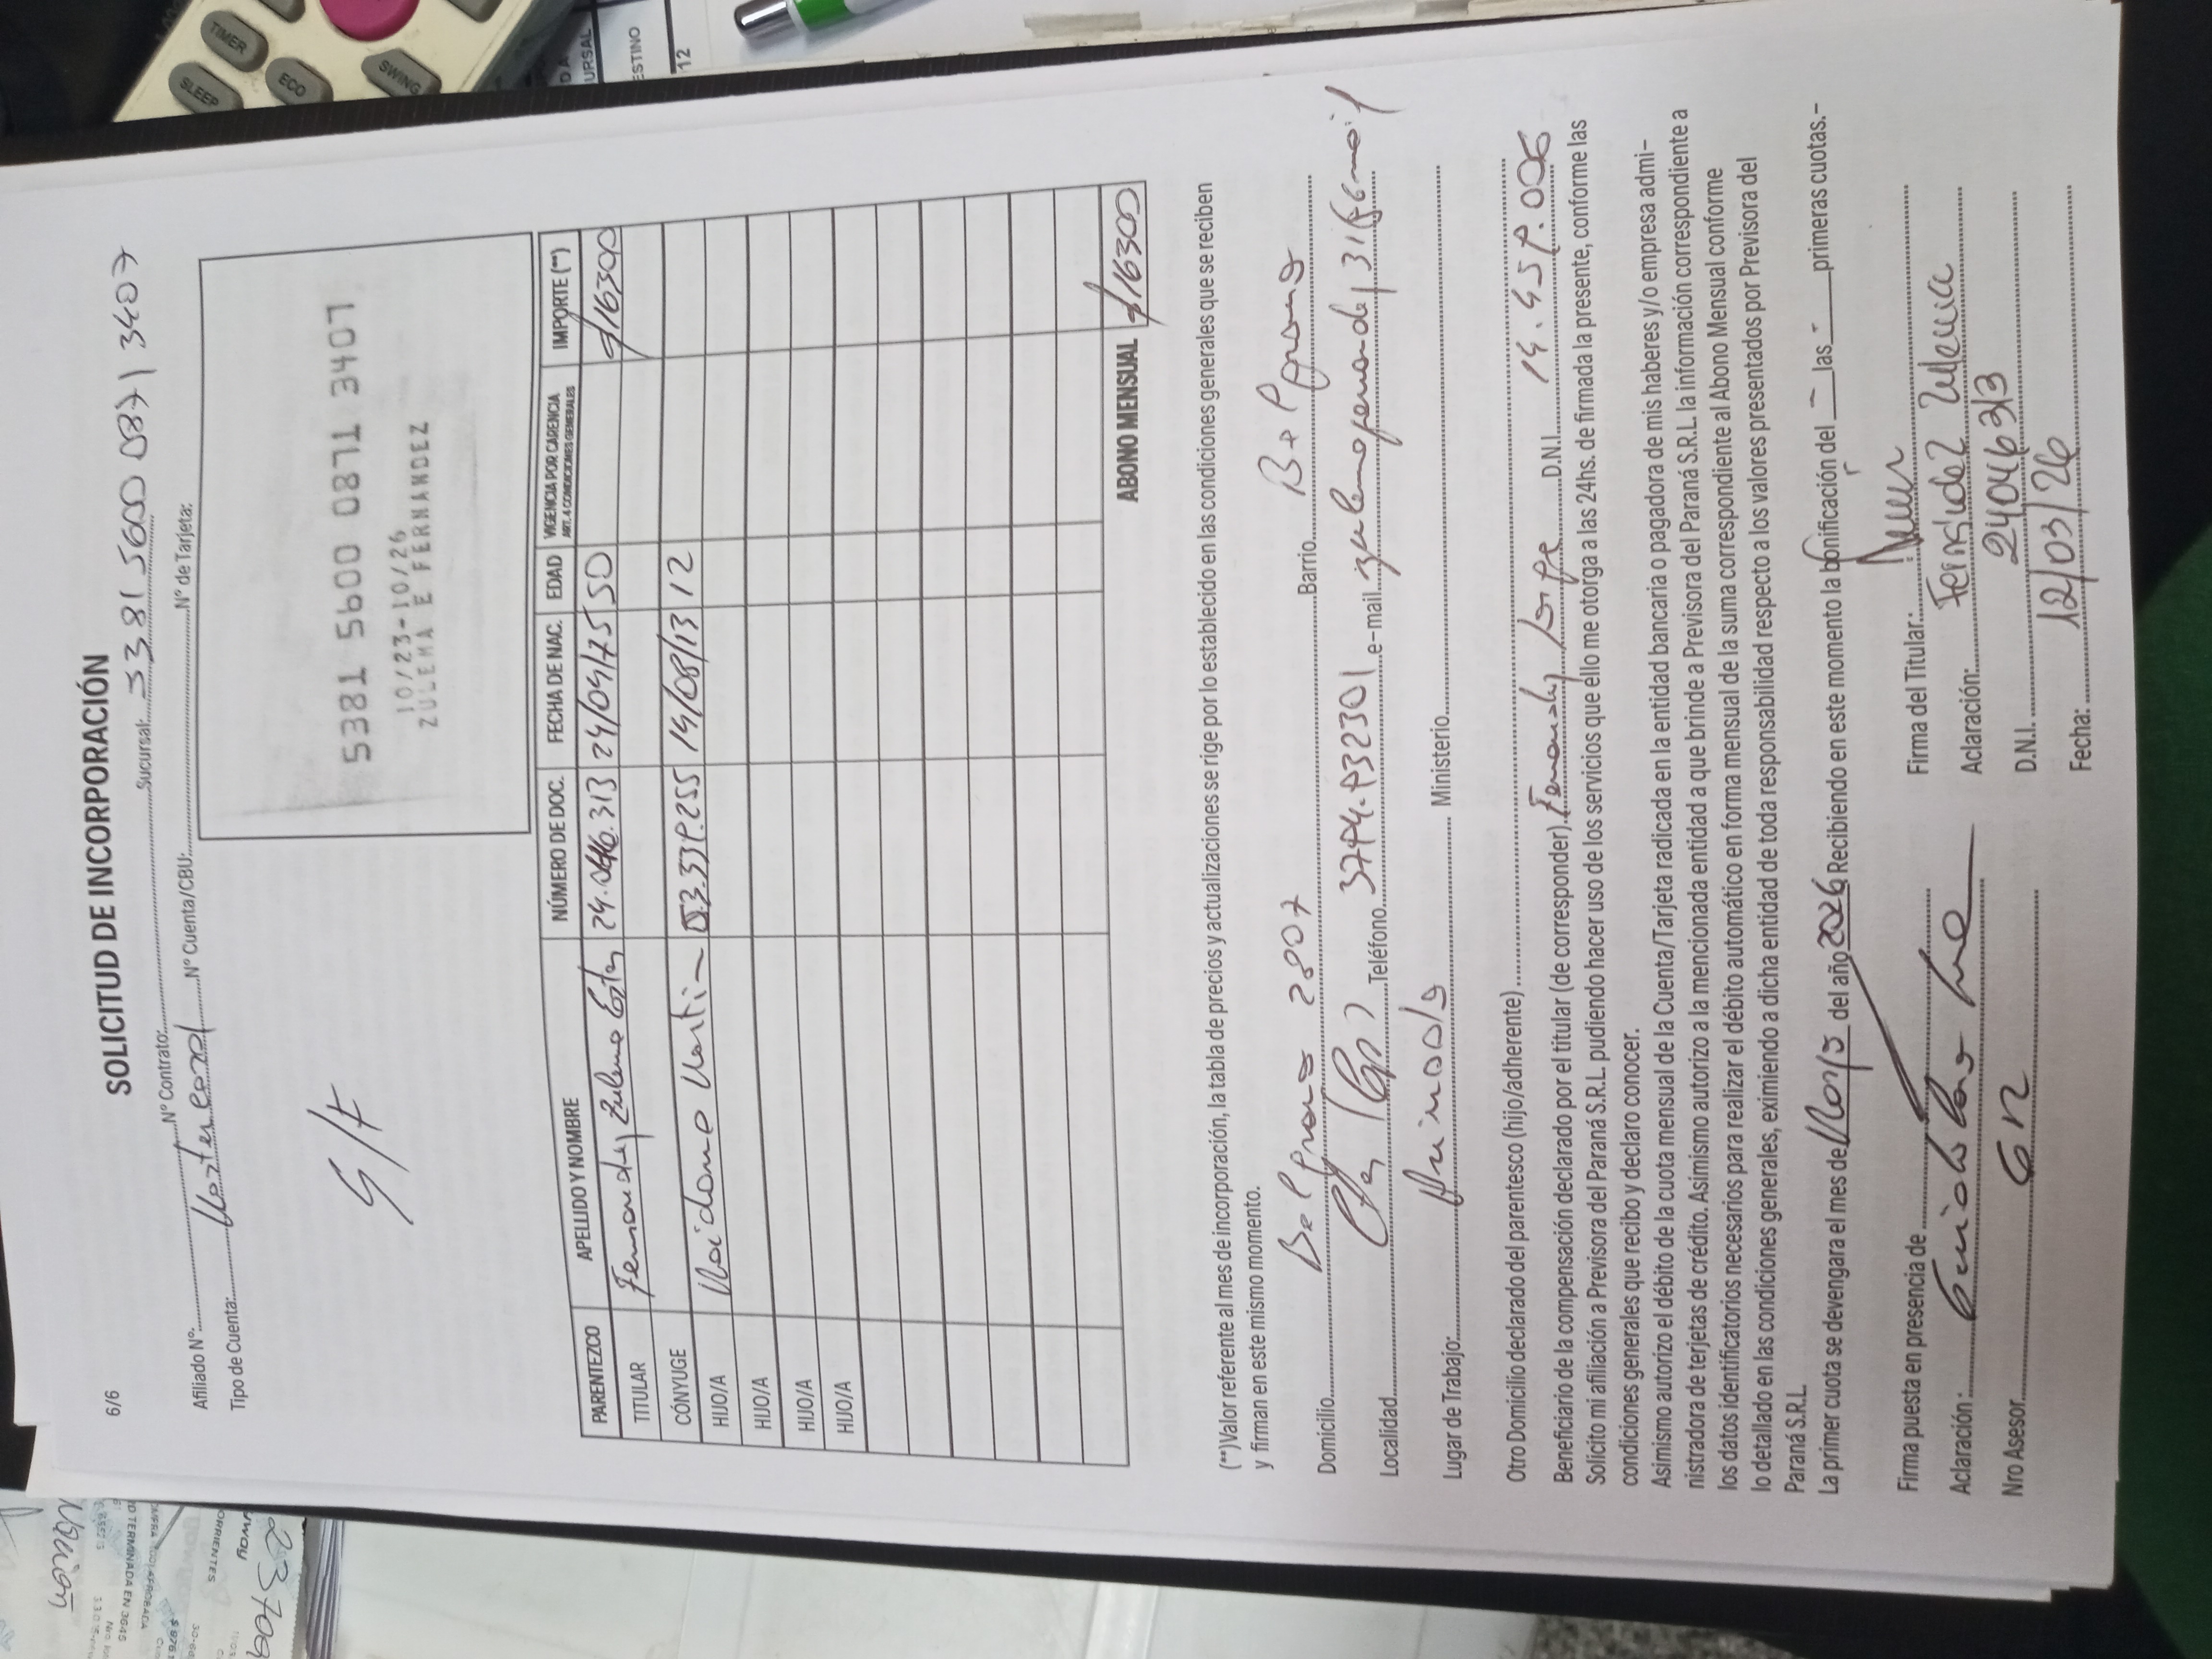 SOLICITUD DE INCORPORACIÓN
6/6
Afiliado N°: N° Contrato: Sucursal: 5381 5600 0871 3407
Tipo de Cuenta: Mastercard N° Cuenta/CBU: N° de Tarjeta:
S/F
5381 5600 0871 3407
10/23-10/26
ZULEMA E FERNANDEZ
PARENTEZCO APELLIDO Y NOMBRE NÚMERO DE DOC. FECHA DE NAC. EDAD VIGENCIA POR CARENCIA ART. 4 CONDICIONES GENERALES IMPORTE (**)
TITULAR Fernandez Zulema Ester 24.046.313 24/04/75 50 $16300
CÓNYUGE
HIJO/A Maidana Martin 53.539.255 14/08/13 12
HIJO/A
HIJO/A
HIJO/A
ABONO MENSUAL $16300
(**)Valor referente al mes de incorporación, la tabla de precios y actualizaciones se rige por lo establecido en las condiciones generales que se reciben
y firman en este mismo momento.
Domicilio Be Parana 2807 Barrio Bº Parana
Localidad Teléfono 3794.932301 e-mail
Lugar de Trabajo: Ministerio
Otro Domicilio declarado del parentesco (hijo/adherente)
Beneficiario de la compensación declarado por el titular (de corresponder). Fernandez D.N.I.
Solicito mi afiliación a Previsora del Paraná S.R.L. pudiendo hacer uso de los servicios que ello me otorga a las 24hs. de firmada la presente, conforme las
condiciones generales que recibo y declaro conocer.
Asimismo autorizo el débito de la cuota mensual de la Cuenta/Tarjeta radicada en la entidad bancaria o pagadora de mis haberes y/o empresa admi-
nistradora de terjetas de crédito. Asimismo autorizo a la mencionada entidad a que brinde a Previsora del Paraná S.R.L. la información correspondiente a
los datos identificatorios necesarios para realizar el débito automático en forma mensual de la suma correspondiente al Abono Mensual conforme
lo detallado en las condiciones generales, eximiendo a dicha entidad de toda responsabilidad respecto a los valores presentados por Previsora del
Paraná S.R.L.
La primer cuota se devengara el mes de Marzo del año 2026 Recibiendo en este momento la bonificación del - las - primeras cuotas.-
Firma puesta en presencia de Firma del Titular:
Aclaración: Aclaración: Fernandez Zulema
Nro Asesor D.N.I. 24046313
Fecha: 12/03/26
TIMER
SLEEP
ECO
SWING
URSAL
ESTINO
12
ORRIENTES